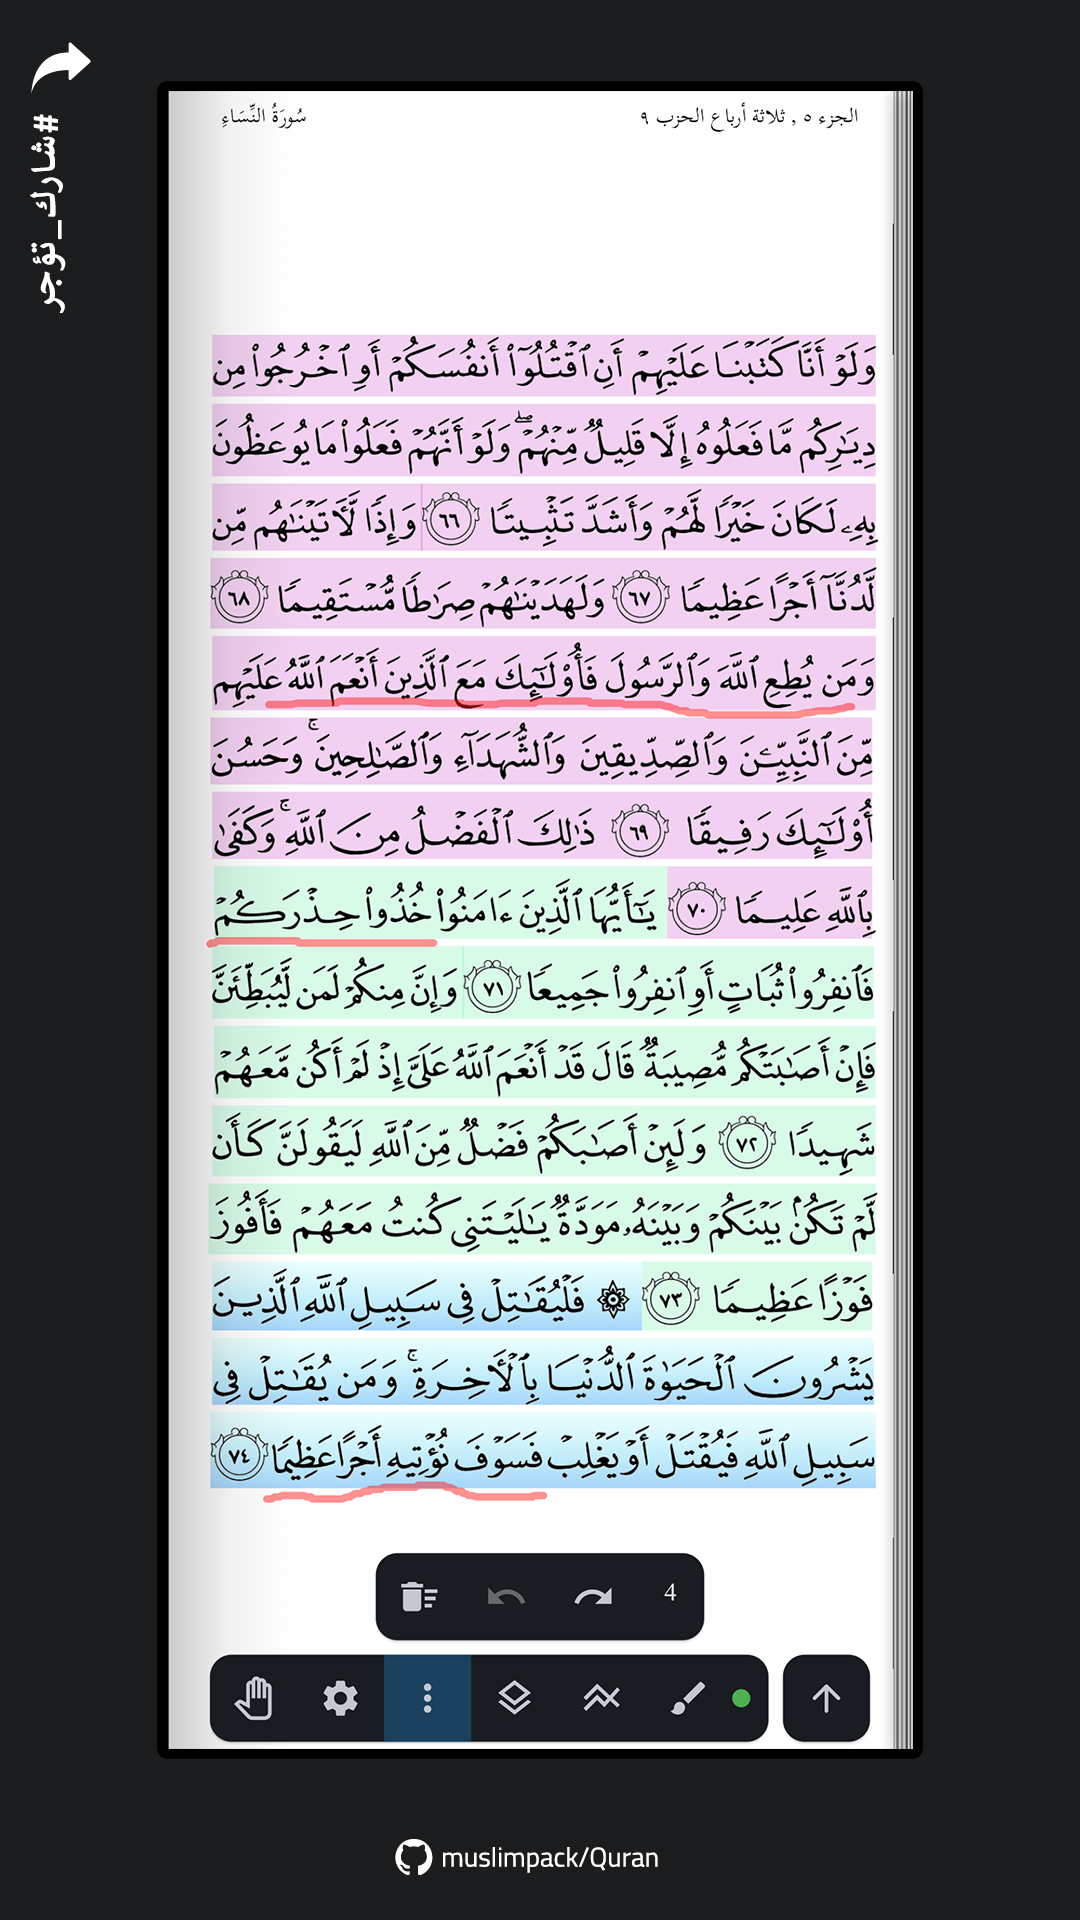 #شارك_تؤجر
الجزء ٥ , ثلاثة أرباع الحزب ٩
سُورَةُ النِّسَاءِ
وَلَوۡ أَنَّا كَتَبۡنَا عَلَيۡهِمۡ أَنِ ٱقۡتُلُوٓاْ أَنفُسَكُمۡ أَوِ ٱخۡرُجُواْ مِن
دِيَٰرِكُم مَّا فَعَلُوهُ إِلَّا قَلِيلٞ مِّنۡهُمۡۖ وَلَوۡ أَنَّهُمۡ فَعَلُواْ مَا يُوعَظُونَ
بِهِۦ لَكَانَ خَيۡرٗا لَّهُمۡ وَأَشَدَّ تَثۡبِيتٗا ٦٦ وَإِذٗا لَّأٓتَيۡنَٰهُم مِّن
لَّدُنَّآ أَجۡرًا عَظِيمٗا ٦٧ وَلَهَدَيۡنَٰهُمۡ صِرَٰطٗا مُّسۡتَقِيمٗا ٦٨
وَمَن يُطِعِ ٱللَّهَ وَٱلرَّسُولَ فَأُوْلَٰٓئِكَ مَعَ ٱلَّذِينَ أَنۡعَمَ ٱللَّهُ عَلَيۡهِم
مِّنَ ٱلنَّبِيِّـۧنَ وَٱلصِّدِّيقِينَ وَٱلشُّهَدَآءِ وَٱلصَّٰلِحِينَۚ وَحَسُنَ
أُوْلَٰٓئِكَ رَفِيقٗا ٦٩ ذَٰلِكَ ٱلۡفَضۡلُ مِنَ ٱللَّهِۚ وَكَفَىٰ
بِٱللَّهِ عَلِيمٗا ٧٠ يَٰٓأَيُّهَا ٱلَّذِينَ ءَامَنُواْ خُذُواْ حِذۡرَكُمۡ
فَٱنفِرُواْ ثُبَاتٍ أَوِ ٱنفِرُواْ جَمِيعٗا ٧١ وَإِنَّ مِنكُمۡ لَمَن لَّيُبَطِّئَنَّ
فَإِنۡ أَصَٰبَتۡكُم مُّصِيبَةٞ قَالَ قَدۡ أَنۡعَمَ ٱللَّهُ عَلَيَّ إِذۡ لَمۡ أَكُن مَّعَهُمۡ
شَهِيدٗا ٧٢ وَلَئِنۡ أَصَٰبَكُمۡ فَضۡلٞ مِّنَ ٱللَّهِ لَيَقُولَنَّ كَأَن
لَّمۡ تَكُنۢ بَيۡنَكُمۡ وَبَيۡنَهُۥ مَوَدَّةٞ يَٰلَيۡتَنِي كُنتُ مَعَهُمۡ فَأَفُوزَ
فَوۡزًا عَظِيمٗا ٧٣ ۞ فَلۡيُقَٰتِلۡ فِي سَبِيلِ ٱللَّهِ ٱلَّذِينَ
يَشۡرُونَ ٱلۡحَيَوٰةَ ٱلدُّنۡيَا بِٱلۡأٓخِرَةِۚ وَمَن يُقَٰتِلۡ فِي
سَبِيلِ ٱللَّهِ فَيُقۡتَلۡ أَوۡ يَغۡلِبۡ فَسَوۡفَ نُؤۡتِيهِ أَجۡرًا عَظِيمٗا ٧٤
4
muslimpack/Quran